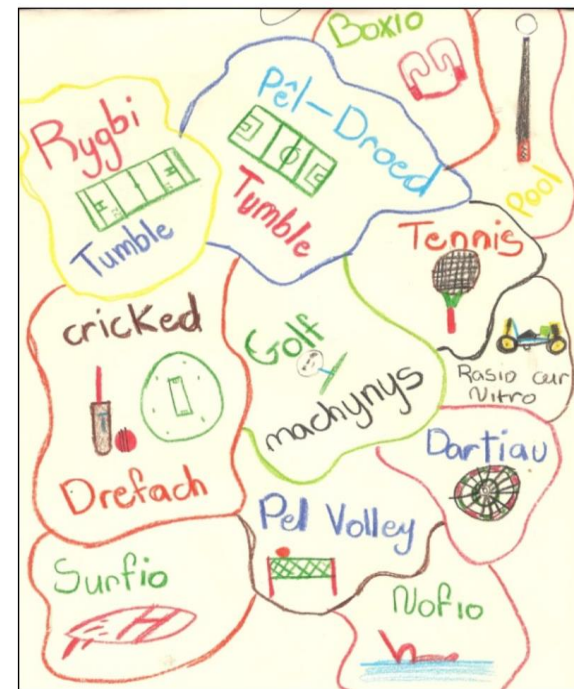 Boxio
Pool
Pêl-Droed
Tymble
Rygbi
Tumble
Tennis
Rasio car
Nitro
cricked
Drefach
Golf
machynys
Dartiau
Pel Volley
Surfio
Nofio